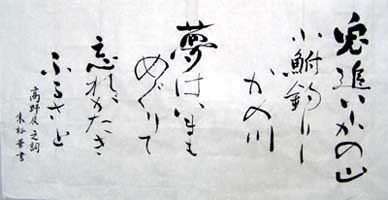 兎追いかの山
小鮒釣りし
かの川
夢はいまも
めぐりて
忘れがたき
ふるさと
高野辰之詞
朱裕華書